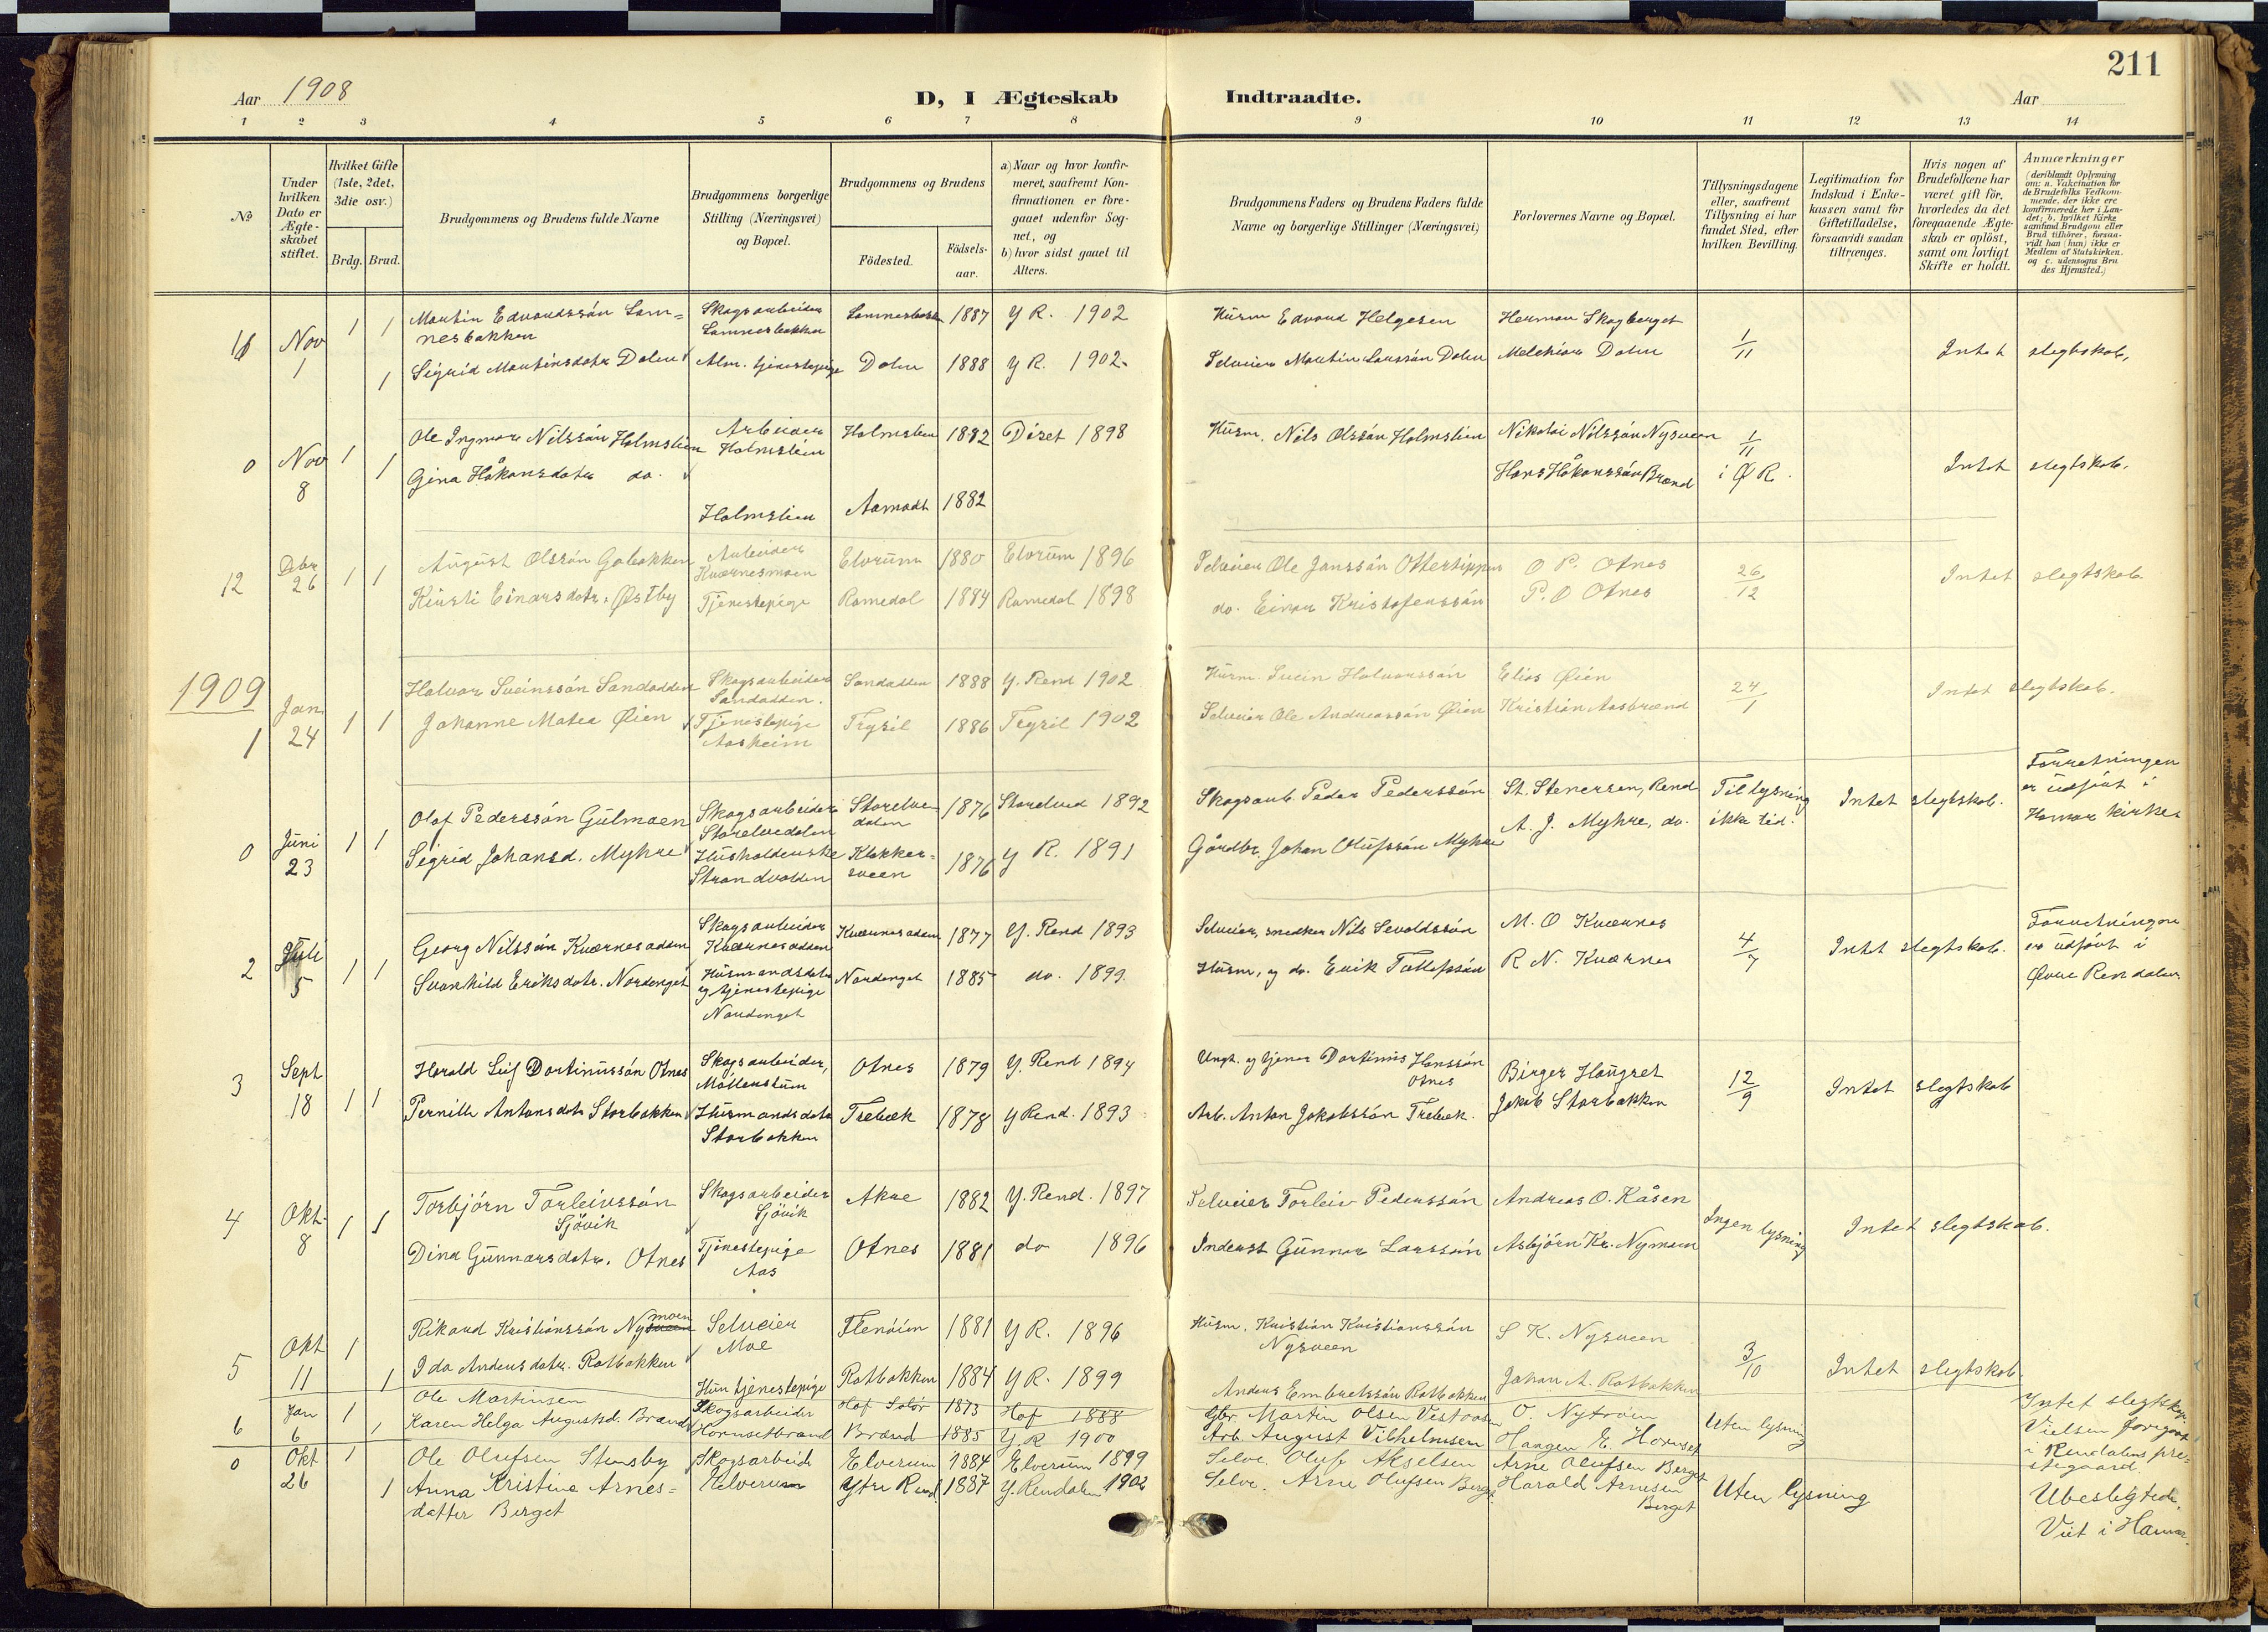 211
Aar 1908
D, I Ægteskab Indtraadte.
Aar
1 2 3 4 5 6 7 8 9 10 11 12 13 14
No
Under hvilken Dato er Ægteskabet stiftet.
Hvilket Gifte (1ste, 2det, 3die osv.)
Brdg. Brud.
Brudgommens og Brudens fulde Navne
Brudgommens borgerlige Stilling (Næringsvei) og Bopæl.
Brudgommens og Brudens
Födested.
Födselsaar.
a) Naar og hvor konfirmeret, saafremt Konfirmationen er foregaaet udenfor Sognet, og
b) hvor sidst gaaet til Alters.
Brudgommens Faders og Brudens Faders fulde Navne og borgerlige Stillinger (Næringsvei)
Forlovernes Navne og Bopæl.
Tillysningsdagene eller, saafremt Tillysning ei har fundet Sted, efter hvilken Bevilling.
Legitimation for Indskud i Enkekassen samt for Giftetilladelse, forsaavidt saadan tiltrænges.
Hvis nogen af Brudefolkene har været gift för, hvorledes da det foregaaende Ægteskab er oplöst, samt om lovligt Skifte er holdt.
Anmærkninger (deriblandt Oplysning om: a. Vakcination for de Brudefolks Vedkommende, der ikke ere konfirmerede her i Landet; b. hvilket Kirkesamfund Brudgom eller Brud tilhörer, forsaavidt han (hun) ikke er Medlem af Statskirken. og c. udensogns Brudes Hjemsted.)
11 Nov 1 1 1 Martin Edvardssön Lomnesbakken Skogsarbeider Lomnesbakken Lomnesbakk 1887 Y R. 1902 Husm Edvard Helgesen Herman Skogberget 1/11 Intet slegtskab,
1 Sigrid Martinsdotr Dolen Alm. tjenestepige Dolen 1888 Y R. 1902. Selveier Martin Larssön Dolen Melchior Dolen
0 Nov 8 1 Ole Ingmar Nilssön Holmstien Arbeider Holmstein Holmstien 1882 Diset 1898 Husm. Nils Olssön Holmstien Nikolai Nilssön Nysveen 1/11 i Ø R. Intet slegtskab.
1 Gina Håkonsdotr do. Holmstien Aamodt 1882 Hans Håkonssön Brænd
12 Debr 26 1 1 August Olssön Gobakken Arbeider Kværnesmoen Elvrum 1880 Elvrum 1896 Selveier Ole Janssön Ottertippen O P. Otnes 26/12 Intet slegtskab.
Kirsti Einarsdotr. Østby Tjenestepige Romedal 1884 Romedal 1898 do. Einar Kristofenssön P. O Otnes
1909
1 Jan 24 1 1 Halvor Sveinssön Sandodden Skogsarbeider Sandodden. Sandodden 1888 Y. Rend 1902 Husm. Svein Halvorssön Elias Øien 24/1 Intet slegtskab.
Johanne Matea Øien Tjenestepige Aasheim Trysil 1886 Trysil 1902 Selveier Ole Andreassön Øien Kristian Aasbrænd
0 Juni 23 1 1 Olaf Pederssön Gulmoen Skogsarbeider Storelvedalen Storelvedalen 1876 Storelved 1892 Skogsarb. Peder Pederssön St. Stenersen, Rend Tillysning ikke tid. Intet slegtskab. Forretningen er udført i Hamar kirke
Sigrid Johansd. Myhre Husholderske Strandvolden Klokkersveen 1876 Y R. 1891 Gårdbr. Johan Olufssön Myhre A. J. Myhre, do.
2 Juli 5 1 1 Georg Nilssön Kværnesodden Skogsarbeider Kværnesodden Kværnesodden 1877 Y. Rend 1893 Selveier, snedker Nils Sevoldssön M. O Kværnes 4/7 Intet slegtskab. Forretningen er udført i Øvre Rendalen
Svanhild Eriksdotr. Nordenget Husmandsdotr og tjenestepige Nordenget Nordenget 1885 do. 1899. Husm, og do. Erik Tollefssön R N. Kværnes
3 Sept 18 1 1 Harald Leif Dortinussön Otnes Skogsarbeider, Möllerstuen Otnes 1879 Y. Rend 1894 Ungk. og tjener Dortinus Hanssön Otnes Birger Haugset 12/9 Intet slegtskab
Pernille Antonsdotr Storbakken Husmandsdotr Storbakken Trebæk 1878 Y Rend. 1893 Arb. Anton Jakobssön Trebæk. Jakob Storbakken
4 Okt. 8 1 1 Torbjörn Torleivssön Sjövik Skogsarbeider Sjövik Akre 1882 Y. Rend. 1897 Selveier Torleiv Pederssön Andreas O. Kåsen Ingen lysning Intet slegtskab.
Dina Gunnarsdotr. Otnes Tjenestepige Aas Otnes 1881 do 1896 Inderst Gunnar Larssön Asbjörn Kr. Nymoen
5 Okt 11 1 Rikard Kristianssön Nymoen Selveier Moe Flenöien 1881 Y R. 1896 Husm. Kristian Kristianssön Nysveen S K. Nysveen 3/10 Intet slegtskab
1 Ida Andersdotr. Rotbakken Hun tjenestepige Rotbakken 1884 Y R. 1899 Anders Embretssön Rotbakken Johan A. Rotbakken
6 Jan 6 1 Ole Martinsen Skogsarbeider Hof Solör 1873 Hof 1888 Gbr. Martin Olsen Vestaasen O. Nytröen Uten lysning Intet slegtskap. Vielsen foregaat i Rendalens prestegaard.
1 Karen Helga Augustsd. Brænd Hornsetbrænd Brænd 1885 Y. R 1900 Arb August Vilhelmsen Haagen E. Hornset
0 Okt 26 1 Ole Olufsen Stensby Skogsarbeid Elverum 1884 Elverum 1899 Selve. Oluf Akselsen Arne Olufsen Berget Uten lysning Ubeslegtede. Viet i Hamar.
1 Anna Kristine Arnesdatter Berget Elverum Ytre Rend. 1887 Y. Rendalen 1902 Selve. Arne Olufsen Berget Harald Arnesen Berget